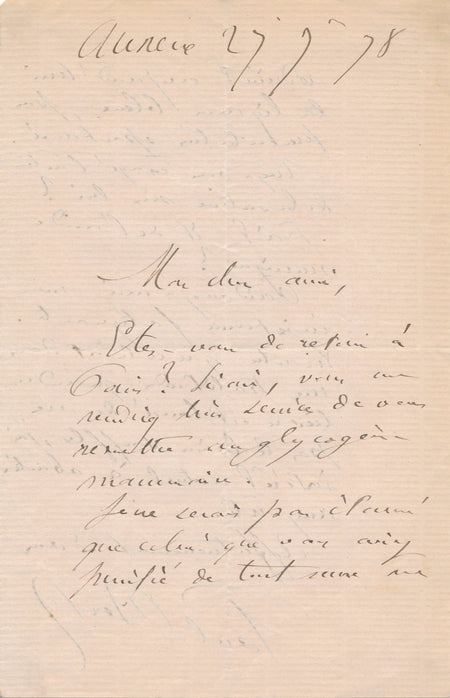 27 78
Mon cher ami,
Êtes-vous de retour à
Paris? Si oui, vous me
rendriez bien service de vous
remettre au glycogène
mammaire.
Je ne serais pas étonné
que celui que vous aviez
purifié de tout sucre ne